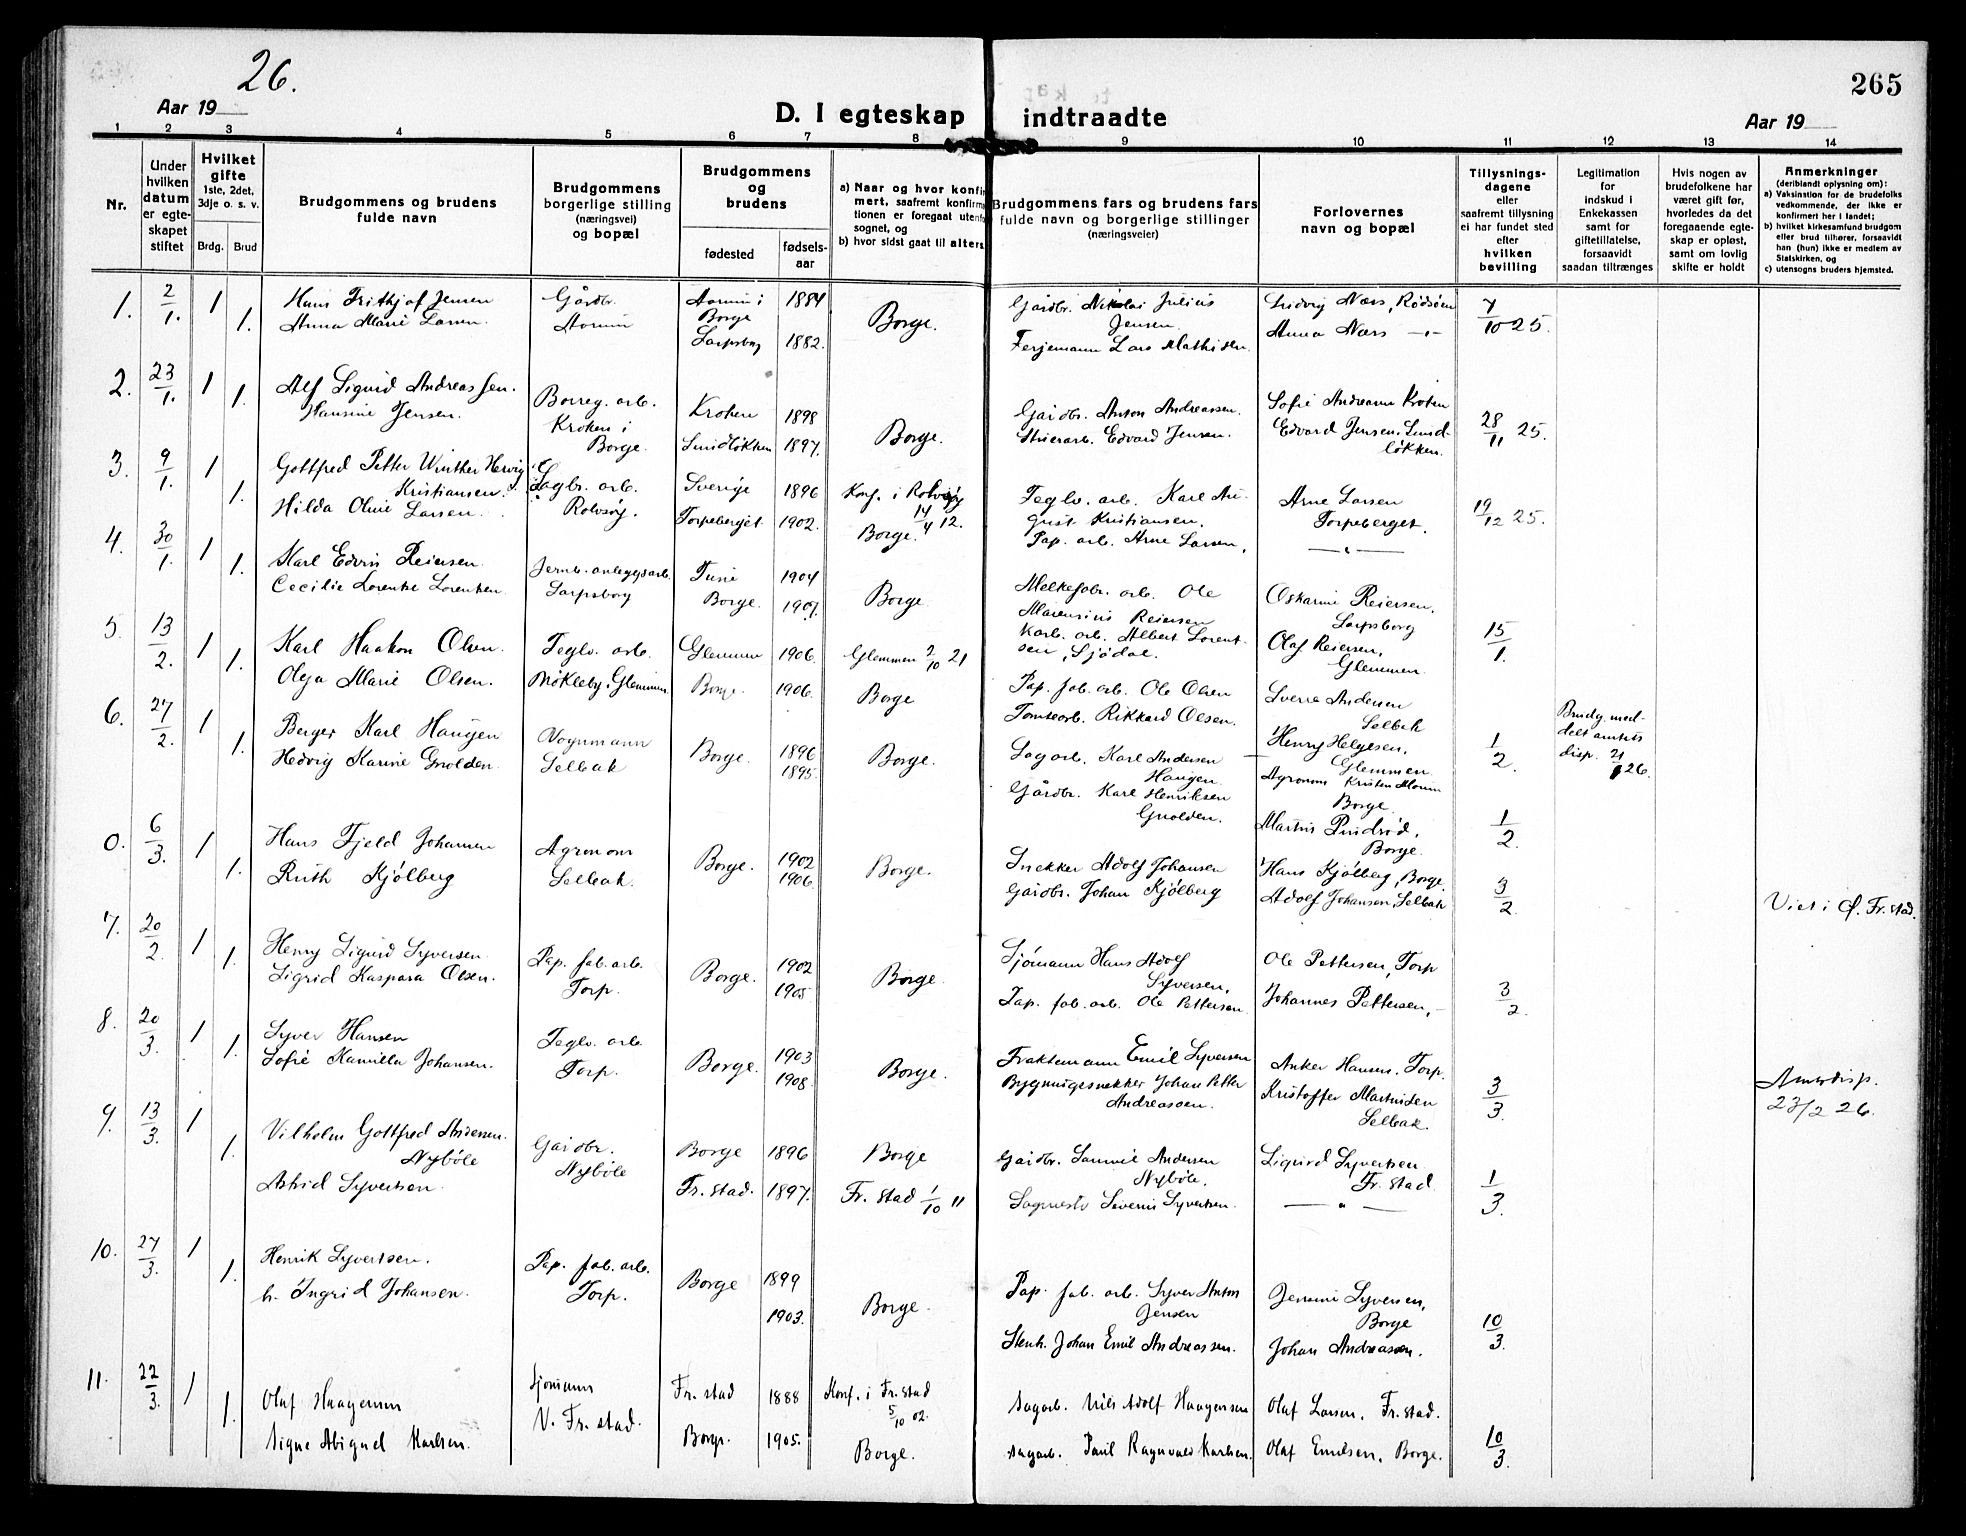 26.
265
Aar 19
D. I egteskap indtraadte
Aar 19
1 2 3 4 5 6 7 8 9 10 11 12 13 14
Nr.
Under hvilken datum er egteskapet stiftet
Hvilket gifte 1ste, 2det, 3dje o. s. v.
Brdg. Brud
Brudgommens og brudens fulde navn
Brudgommens borgerlige stilling (næringsvei) og bopæl
Brudgommens og brudens
fødested fødsels-aar
a) Naar og hvor konfir
mert, saafremt konfirma
tionen er foregaat utenfo
sognet, og
b) hvor sidst gaat til alters
Brudgommens fars og brudens fars fulde navn og borgerlige stillinger (næringsveier)
Forlovernes navn og bopæl
Tillysnings-dagene eller saafremt tillysning ei har fundet sted efter hvilken bevilling
Legitimation for indskud i Enkekassen samt for giftetillatelse, forsaavidt saadan tiltrænges
Hvis nogen av brudefolkene har været gift før, hvorledes da det foregaaende egteskap er opløst, samt om lovlig skifte er holdt
Anmerkninger
(deriblandt oplysning om):
a) Vaksination for de brudefolks vedkommende, der ikke er konfirmert her i landet;
b) hvilket kirkesamfund brudgom eller brud tilhører, forsaavidt han (hun) ikke er medlem av Statskirken, og
c) utensogns bruders hjemsted.
1. 2/1. 1 1. Hans Frithjof Jensen Gårdbr. i Borge 1884 Borge. Gårdbr. Nikolai Julius Jensen Ludvig Næss, Rødsøen 7/10 25.
Anna Marie Larsen. Sarpsborg 1882. Ferjemann Lars Mathisen Anna Næss -"-
2. 23/1. 1 1. Alf Sigurd Andreassen. Borreg. arb. Kroken 1898 Borge. Gårdbr. Anton Andreassen. Sofie Andreassen Kroken 28/11 25.
Hansine Jensen. Kroken i Borge. 1897. Edvard Jensen. Edvard Jensen.
3. 9/1. 1 1. Gottfred Petter Winther Hervig Kristiansen. Sagbr. arb. Sverige 1896 Konf. i Rolvsøy 14/4 12. Teglv. arb. Karl August Kristiansen. Arne Larsen Torpeberget. 19/12 25.
Hilda Oline Larsen. Rolvsøy. Torpeberget 1902. Borge. Pap. arb. Arne Larsen. -"-
4. 30/1. 1 1. Karl Edvin Reiersen. Jernb. anleggsarb. Tune 1904 Borge. Melkefabr. arb. Ole Marensius Reiersen Oskarine Reiersen. Sarpsborg 15/1.
Cecilie Lorentse Lorentsen. Sarpsborg Borge. 1907. Karb. arb. Albert Lorentsen, Sjødal. Olaf Reiersen, Glemmen
5. 13/2. 1 1. Karl Haakon Olsen. Teglv. arb. Glemmen 1906. Glemmen 2/10 21 Pap. fab. arb. Ole Olsen Sverre Andersen Selbak 1/2.
Olga Marie Olsen. Møkleby, Glemmen. Borge. 1906. Borge Tomtearb. Rikkard Olsen. Henry Helgesen, Glemmen
6. 27/2. 1 1. Berger Karl Haugen Vognmann Borge. 1896 Borge. Sagarb. Karl Andersen Haugen. Agronom Kristen Borge 1/2. Brudg. meddelt amtets disp. 26.
Hedvig Karine Gnolden. Selbak 1895. Gårdbr. Karl Henriksen Gnolden. Martin Borge.
0. 6/3. 1 1. Hans Fjeld Johansen Agronom Borge. 1902 Borge. Snekker Adolf Johansen Hans Kjølberg, Borge. 3/2
Ruth Kjølberg Selbak. 1906. Gårdbr. Johan Kjølberg Adolf Johansen, Selbak Viet i Ø. Fr.stad.
7. 20/2 1 1. Henry Sigurd Syversen. Pap. fab. arb. Borge. 1902 Borge. Sjømann Hans Adolf Syversen, Ole Pettersen, Torp 3/2.
Sigrid Kaspara Olsen. Torp. 1905. Pap. fab. arb. Ole Pettersen. Johannes Pettersen, -
8. 20/3. 1 1. Syver Hansen Teglv. arb. Borge. 1903 Borge. Fraktemann Emil Syversen Anker Hansen. Torp. 3/3.
Sofie Kamilla Johansen. Torp. 1908. Bygningssnekker Johan Petter Andreassen. Kristoffer Martinsen Selbak. 23/2 26.
9. 13/3. 1 1. Vilhelm Gottfred Andersen. Nybøle Gårdbr. Borge 1896 Borge Gårdbr. Samuel Andersen Nybøle, Sigurd Syvertsen. Fr.stad 1/3.
Astrid Syvertsen. Nybøle Fr. stad. 1897. Fr. stad 1/10 11 Severin Syvertsen. -"-
10. 27/3. 1 1. Henrik Syvertsen. Pap. fab. arb. Borge 1899 Borge. Pap. fab. arb. Syver Anton Jensen Syversen, Borge 10/3.
h. Ingrid Johansen. Torp. 1903. Stenh. Johan Emil Andreassen. Johan Andreassen.
11. 22/3. 1 1. Olaf Haagensen Sjømann Fr. stad 1888 Konf. i Fr. stad 5/10 02. Sagarb. Nils Adolf Haagensen Olaf Larsen, Fr. stad. 10/3.
Signe Abigael Karlsen. V. Fr. stad. Borge. 1905. Borge. Sagarb. Paul Ragnvald Karlsen. Olaf Emilsen, Borge.